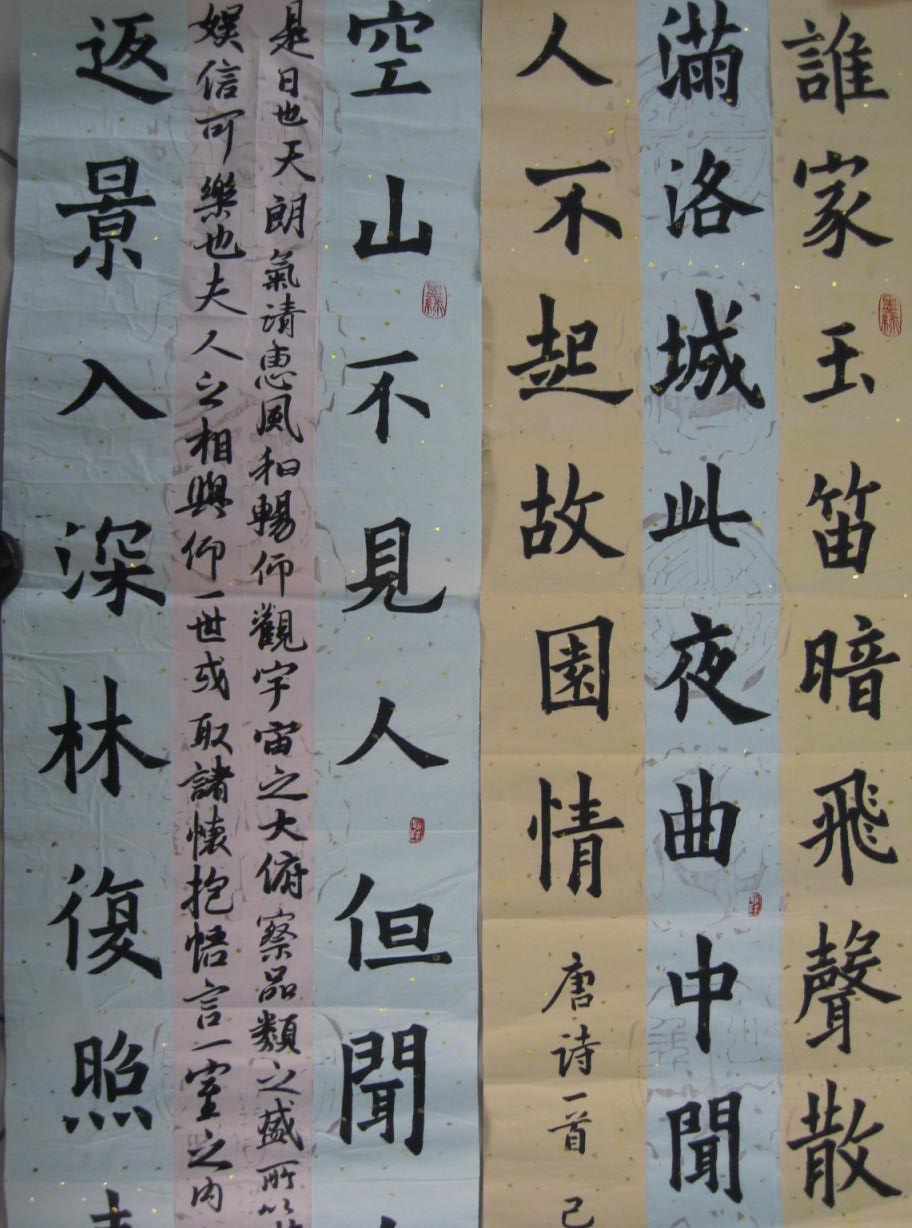 誰家玉笛暗飛聲散
滿洛城此夜曲中聞
人不起故園情
唐詩一首己
空山不見人但聞
是日也天朗氣清惠風和暢仰觀宇宙之大俯察品類之盛所以
娛信可樂也夫人之相與仰一世或取諸懷抱悟言一室之內
返景入深林復照